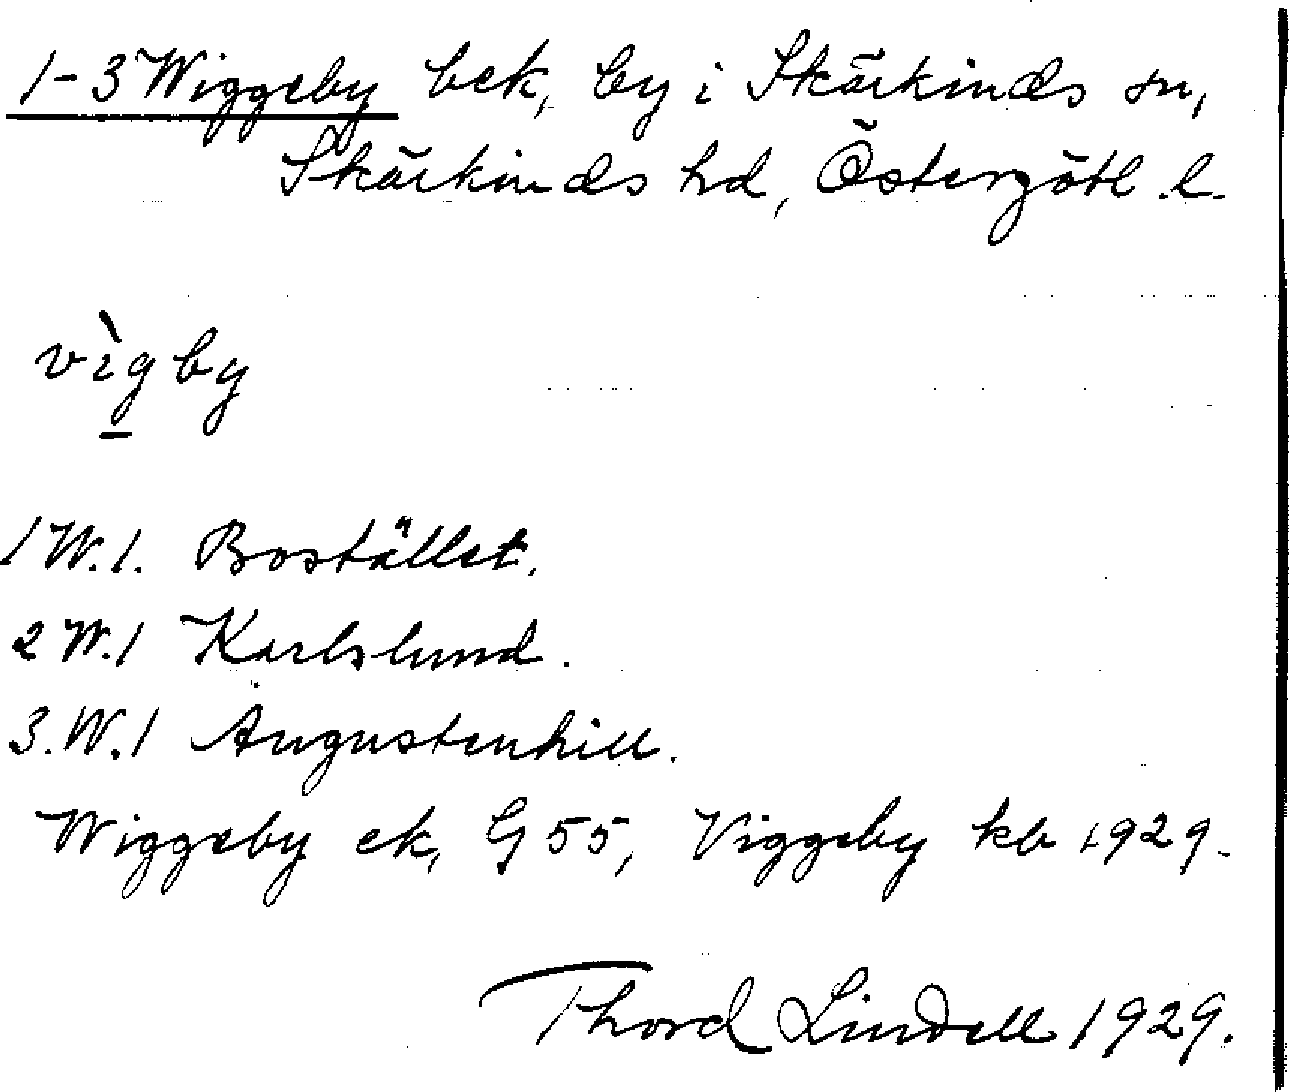 1-3 Wiggeby bek, by i Skärkinds sn,
Skärkinds hd, Östergötl. l.
vìgby
1 W. 1. Bostället.
2 W. 1 Karlslund.
3. W. 1 Augustenhill.
Wiggeby ek, G 55, Viggeby kb 1929.
Thord Lindell 1929.